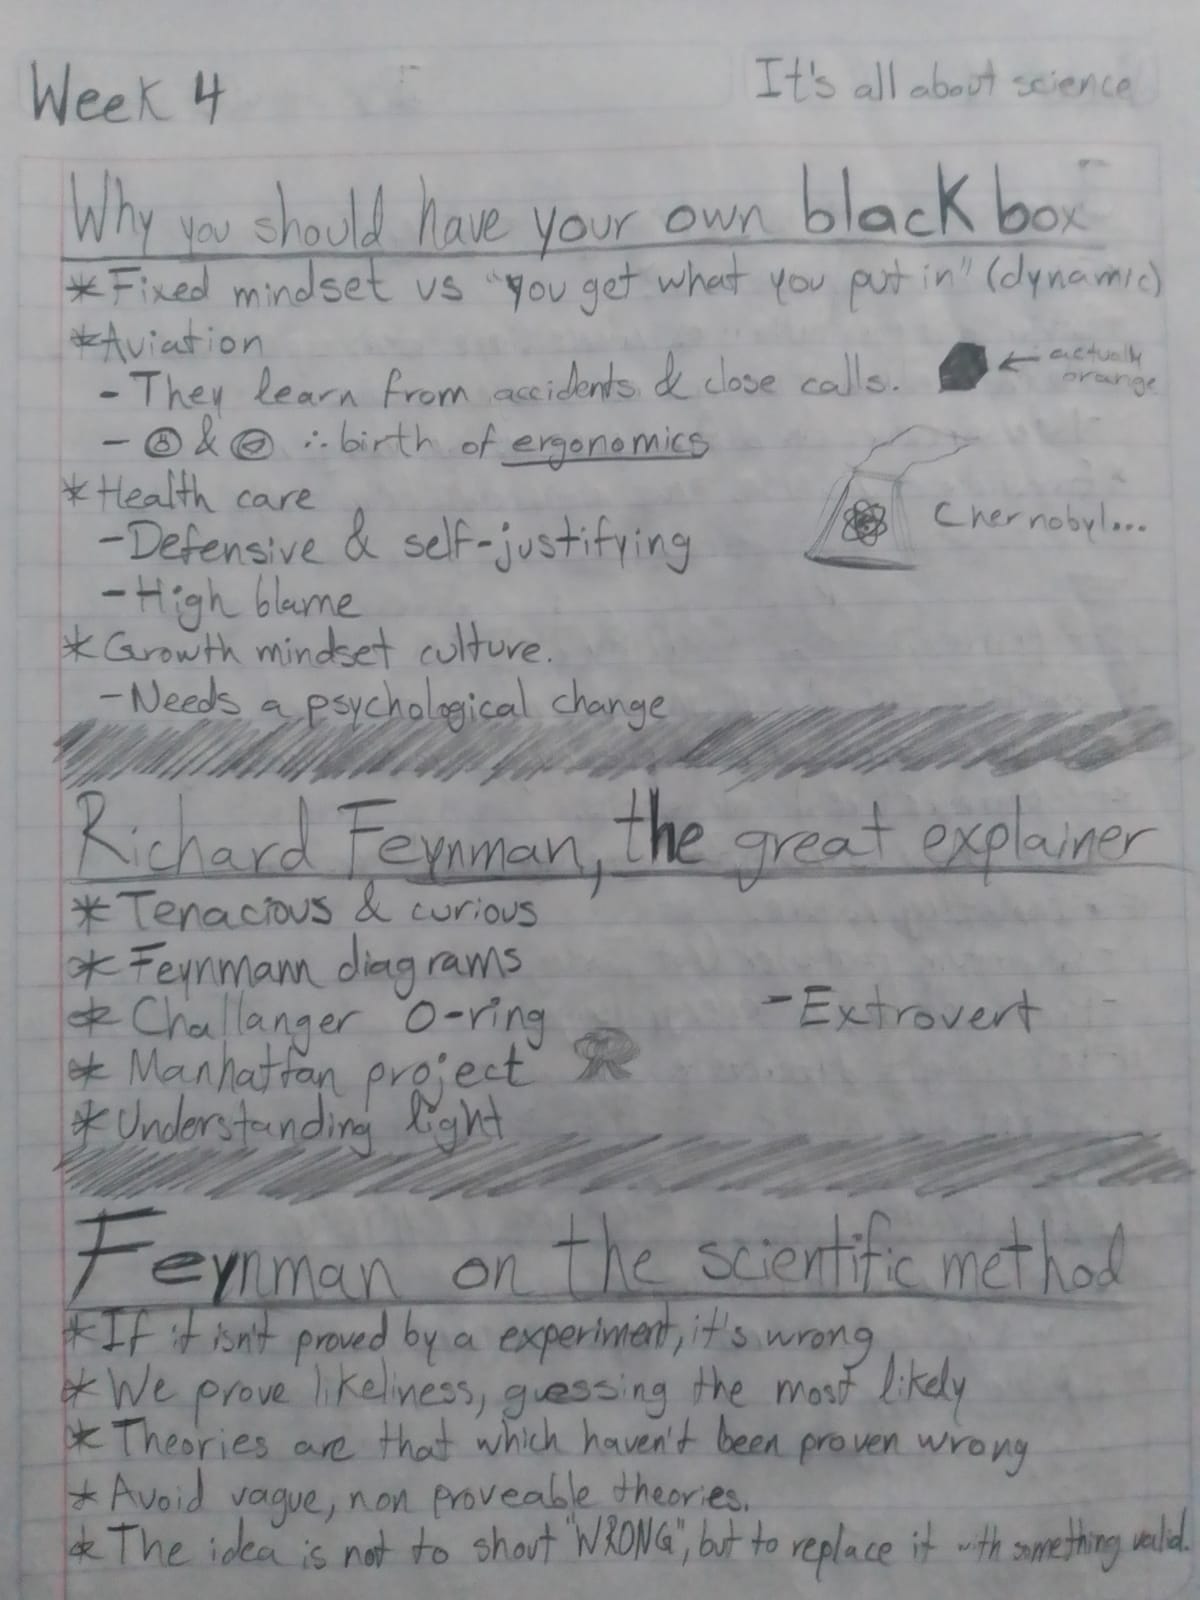 Week 4
It's all about science
Why you should have your own black box
* Fixed mindset vs "you get what you put in" (dynamic)
* Aviation
- They learn from accidents & close calls.
← actually
orange
- & ∴ birth of ergonomics
* Health care
- Defensive & self-justifying
Chernobyl...
- High blame
* Growth mindset culture.
- Needs a psychological change
Richard Feynman, the great explainer
* Tenacious & curious
* Feynmann diagrams
* Challanger O-ring
- Extrovert
* Manhattan project
* Understanding light
Feynman on the scientific method
* If it isn't proved by a experiment, it's wrong
* We prove likeliness, guessing the most likely
* Theories are that which haven't been proven wrong
* Avoid vague, non proveable theories.
* The idea is not to shout "WRONG", but to replace it with something valid.